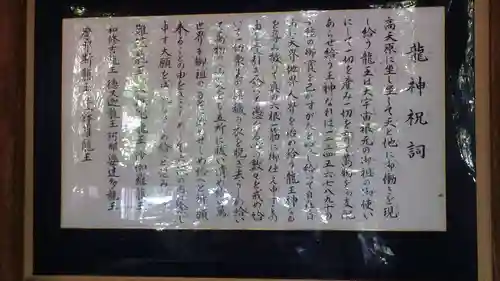 龍神祝詞
高天原に坐し坐して天と地に御働きを現
し給う龍王は大宇宙根元の御祖の御使い
にして一切を産み一切を育て萬物を御支配
あらせ給う王神なれば一二三四五六七八九十の
十種の御寶を己がすがたと変じ給いて自在自由
に天界地界人界を治め給う龍王神なる
を尊み敬いて真の六根一筋に御仕え申すこと
の由を受引き給いて愚なる心の数々を戒め給
いて一切衆生の罪穢の衣を脱ぎ去らしめ給い
て萬物の病災をも立所に祓い清め給い萬
世界も御祖のもとに治めせしめ給へと祈願
奉ることの由をきこしめして六根の内に念じ
申す大願を成就なさしめ給へと恐み
難陀龍王 跋難陀龍王 娑伽羅龍王
和修吉龍王 徳叉迦龍王 阿那婆達多龍王
摩那斯龍王 優鉢羅龍王